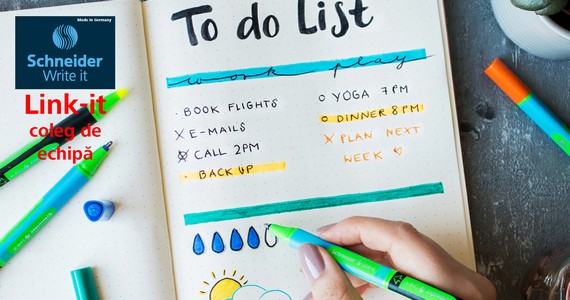 Made in Germany
Schneider
Write it
Link-it
coleg de
echipă
To do List
work play
· BOOK FLIGHTS
X E-MAILS
CALL 2PM
· BACK UP
YOGA 7PM
DINNER 8PM
X PLAN NEXT
WEEK